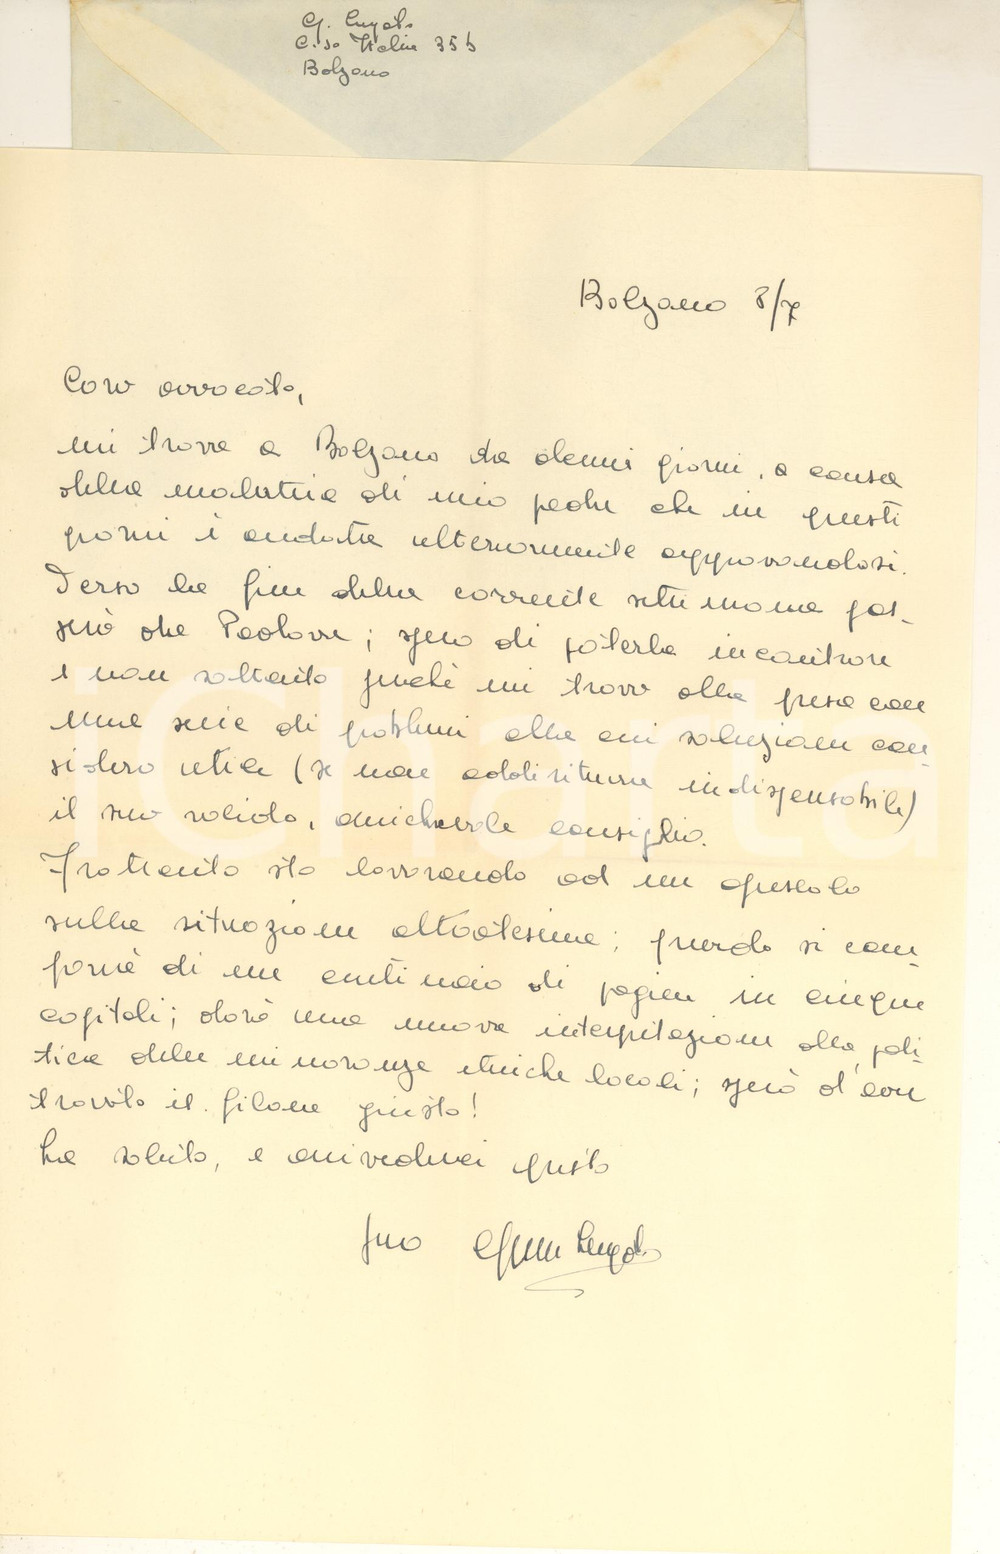 G.
C.so Italia 35b
Bolzano
Bolzano 8/7
Caro avvocato,
mi trovo a Bolzano da alcuni giorni, a causa
della malattia di mio padre che in questi
giorni è andata ulteriormente aggravandosi.
Verso la fine della corrente settimana pas-
serò da Padova; spero di poterla incontrare
e non soltanto perché mi trovo alle prese con
una serie di problemi alla cui soluzione con-
sidero utile (se non addirittura indispensabile)
il suo solido, amichevole consiglio.
Frattanto sto lavorando ad un opuscolo
sulla situazione altoatesina; quando si com-
porrà di un centinaio di pagine in cinque
capitoli; darà una nuova interpretazione alla poli-
tica delle minoranze etniche locali; spero d'aver
trovato il filone giusto!
La saluto, e arrivederci presto
suo
iCharta